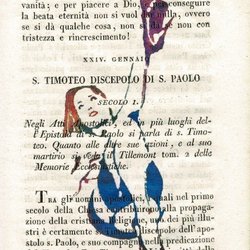 vanità; e per piacere a Dio, e
la beata eternità non si vuol far nulla, ovvero
se si dà qualche cosa, non si dà se non con
tristezza e rincrescimento!
XXIV. GENNAI
S. TIMOTEO DISCEPOLO DI S. PAOLO
SECOLO I.
Negli Atti Apostolici, ed in più luoghi del-
l'Epistole di S. Paolo si parla di S. Timo-
teo. Quanto alle altre sue azioni, e al suo
martirio si veda il Tillemont tom. 2 delle
Memorie Ecclesiastiche.
TRA gli uomini apostolici, i quali nel primo
secolo della Chiesa contribuirono alla propaga-
zione della cristiana religione, uno dei più illu-
stri è certamente S. Timoteo discepolo dell'apo-
stolo s. Paolo, e suo compagno nella predicazione